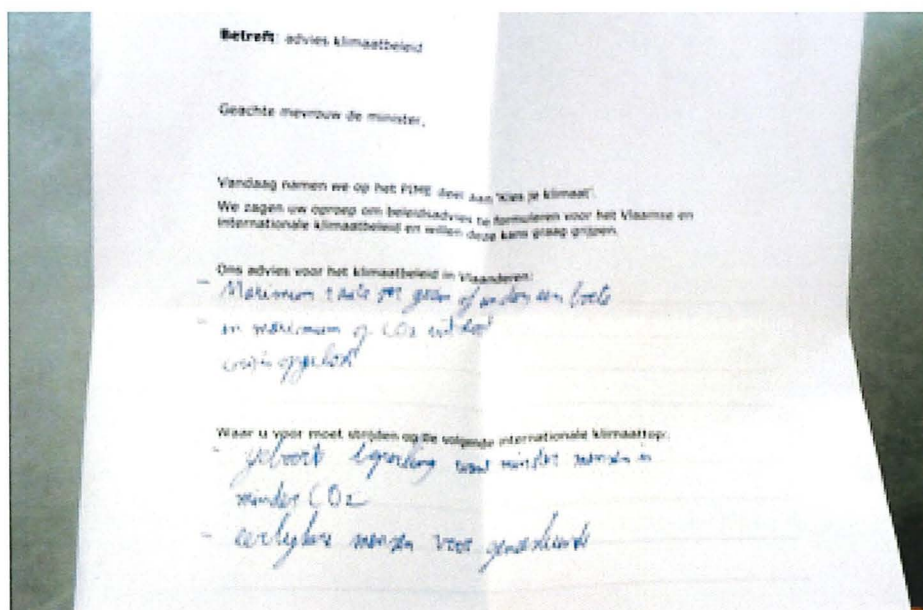 Betreft: advies klimaatbeleid
Geachte mevrouw de minister,
Vandaag namen we op het PIME deel aan 'Kies je klimaat'.
We zagen uw oproep om beleidsadvies te formuleren voor het Vlaamse en
internationale klimaatbeleid en willen deze kans graag grijpen.
Ons advies voor het klimaatbeleid in Vlaanderen:
- Maximum of anders een boete
- maximum op CO2
opgelost
Waar u voor moet strijden op de volgende internationale klimaattop:
- geboorte beperking want minder mensen is
minder CO2
- mensen voor